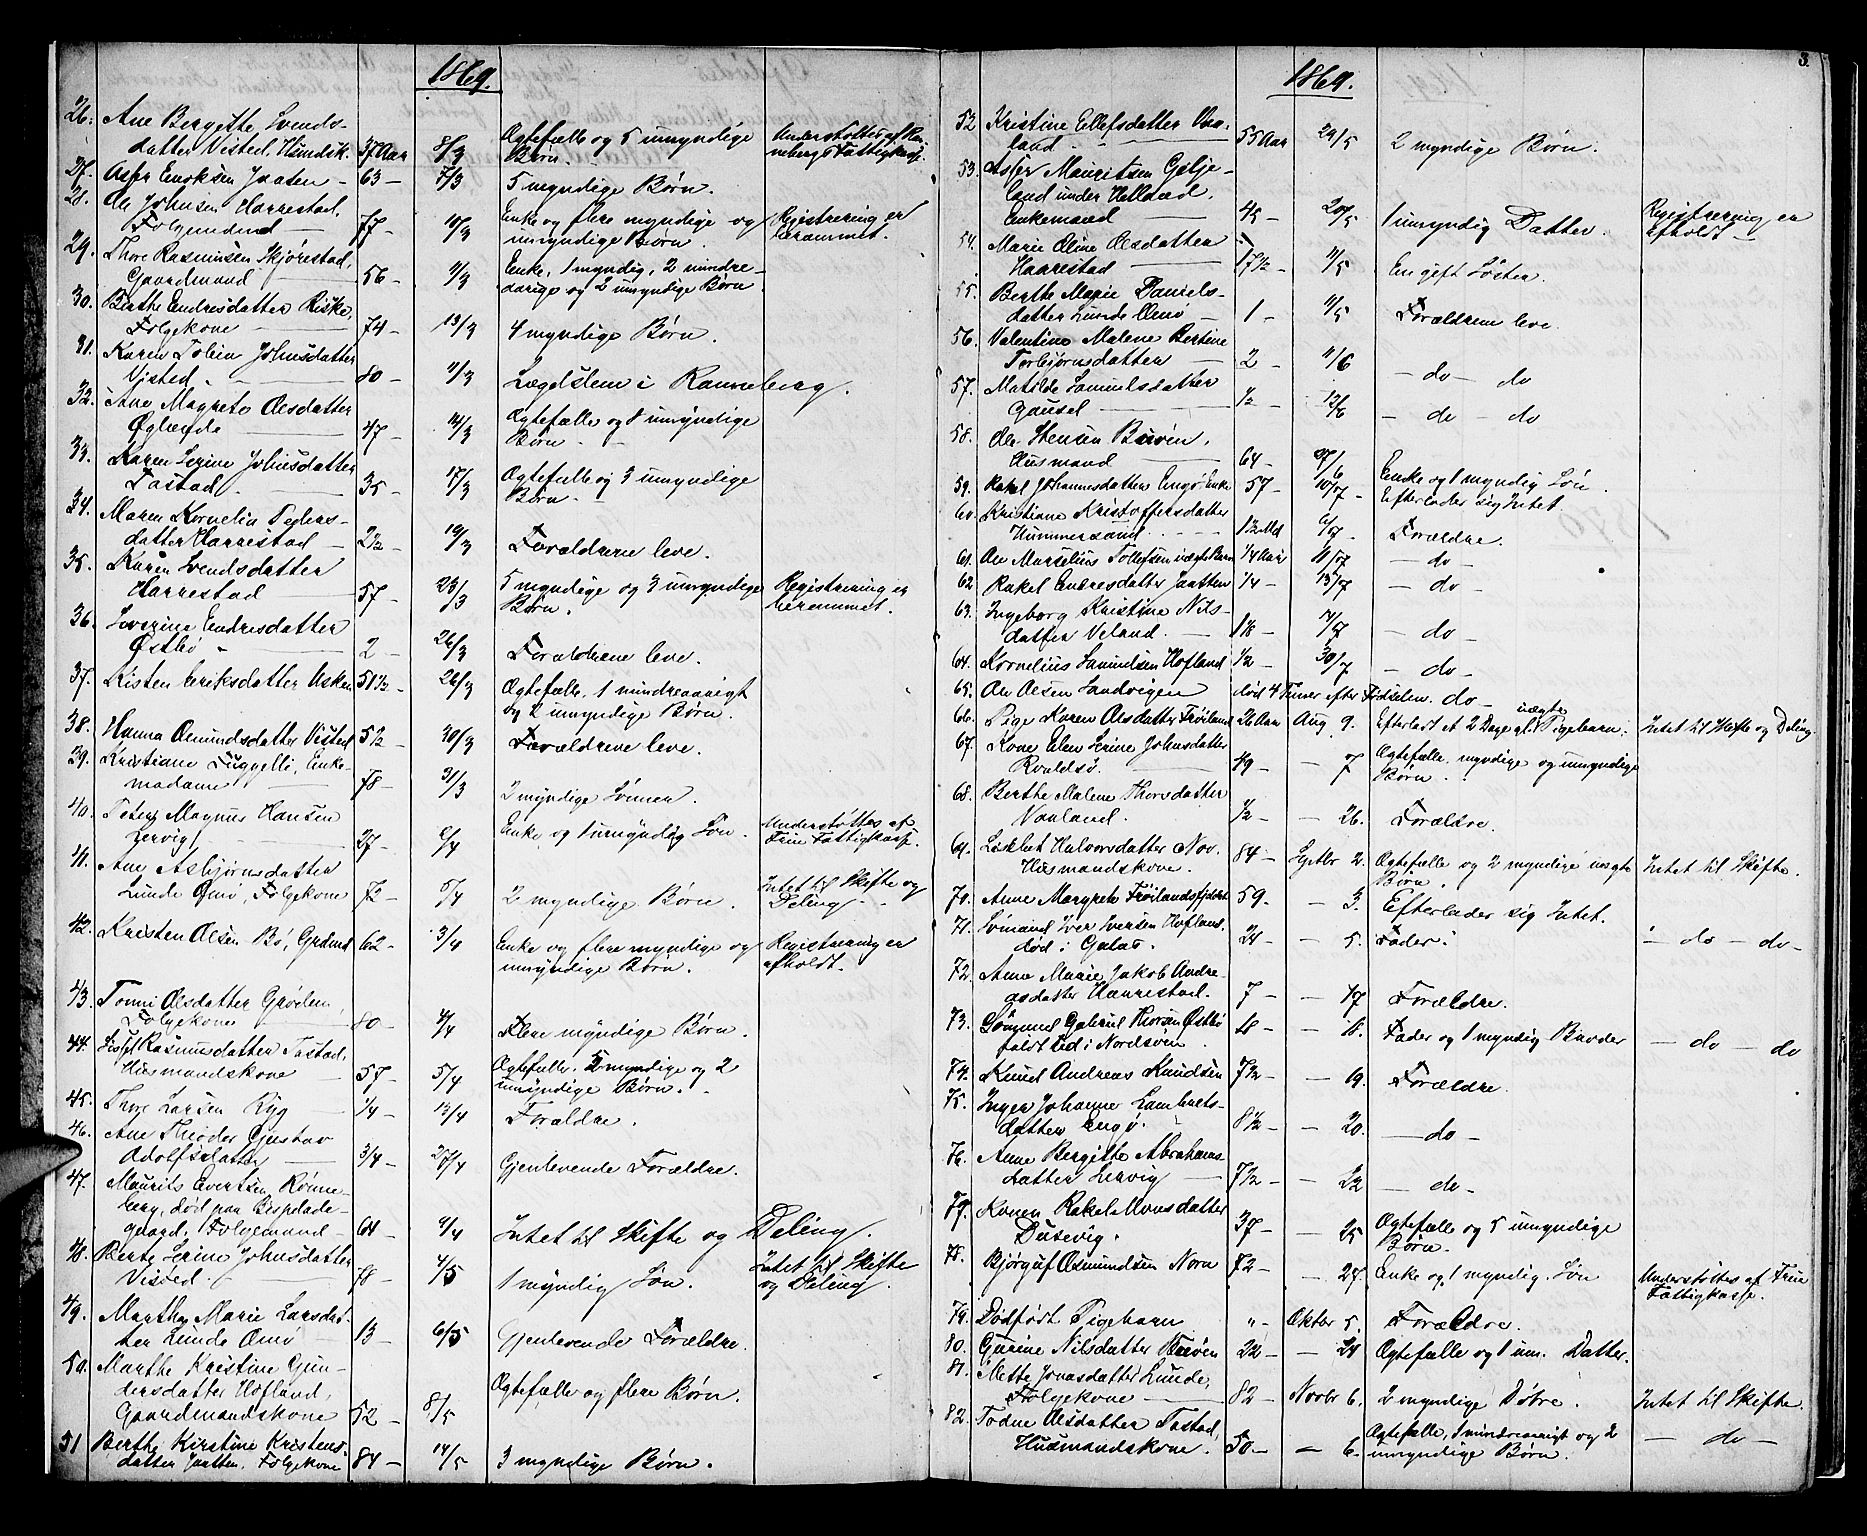 1869.
26. Ane Bergitte Svends-
datter Visted, Husmdsk. 37 Aar 8/3 Ægtefælle og 5 umyndige Børn. Understøttes af Ran-
nebergs Fattigkasse.
27. Asser Eriksen Jaaten — 63 — 7/3 5 myndige Børn.
28. Ole Johnsen Harrestad,
Folgemand — 77 — 10/3 Enke og flere myndige og
umyndige Børn. Registrering er
berammet.
29. Thore Rasmussen Skjørestad,
Gaardmand — 56 — 11/3 Enke, 1 myndig, 2 mindre-
aarige og 2 umyndige Børn
30. Berthe Endresdatter Riske,
Folgekone — 74 — 13/3 4 myndige Børn.
31. Karen Tobia Johnsdatter
Visted. — 80 — 11/3 Lægdslem i Ranneberg.
32. Ane Magrete Olesdatter
Øglænde — 47 — 14/3 Ægtefælle og 1 umyndige
Børn. —
33. Karen Serine Johnsdatter
Tastad. — 35 — 17/3 Ægtefælle og 3 umyndige
Børn. —
34. Maren Kornelia Peders-
datter Harrestad — 2 1/2 — 19/3 Forældrene leve.
35. Karen Svendsdatter
Harrestad — 57 — 23/3 5 myndige og 3 umyndige
Børn. Registrering er
berammet.
36. Severine Endresdatter
Østbø — 2 — 26/3 Forældrene leve.
37. Kisten Eriksdatter Asken 51 1/2 — 26/3 Ægtefælle, 1 mindreaarigt
og 2 umyndige Børn.
38. Hanna Osmundsdatter Visted 5 1/2 — 30/3 Forældrene leve.
39. Kristiane Enke-
madame — 78 — 31/3 2 myndige Sønner.
40. Peter Magnus Hansen
Lervig — 27 — 2/4 Enke og 1 umyndig Søn. Understøttes af
Frue Fattigkasse.
41. Ane Asbjørnsdatter
Lunde Omø, Folgekone 72 — 5/4 2 myndige Børn. Intet til Skifte og
Deling. —
42. Kristen Olsen Bø, Grdmd 62 — 3/4 Enke og flere myndige og
umyndige Børn. Registrering er
afholdt.
43. Tonni Olsdatter Grødem,
Folgekone — 80 — 4/4 Flere myndige Børn.
44. Sissel Rasmusdatter Tastad,
Husmandskone — 57 — 5/4 Ægtefælle, 5 myndige og 2
umyndige Børn. —
45. Thore Larsen Ryg — 1/4 — 13/4 Forældre.
46. Ane Theodor Gustav
Adolfsdatter — 3/4 — 27/4 Gjenlevende Forældre.
47. Maurits Evertsen Rønne-
berg, død paa Bispelade-
gaard, Folgemand — 64 — 9/4 Intet til Skifte og Deling.
48. Berte Serine Johnsdatter
Visted. — 78 — 4/5 1 myndig Søn. Intet til Skifte
og Deling.
49. Martha Marie Larsdat-
ter Lunde Omø — 13 — 6/5 Gjenlevende Forældre.
50. Marthe Kristine Gun-
dersdatter Hofland,
Gaardmandskone 52 — 8/5 Ægtefælle og flere Børn.
51 Berthe Kirstine Kristens-
datter Jaatten, Folgekone 84 — 14/5 3 myndige Børn.
3.
1869.
52 Kristine Ellefsdatter Vaa-
land. — 55 Aar 29/5 2 myndige Børn.
53. Asser Mauritsen Gilje-
land under Helland,
Enkemand — 45 — 20/5 1 umyndig Datter. Registrering er
afholdt —
54. Marie Oline Olsdatter
Haarestad — 17 1/2 — 7/5 En gift Søster.
55. Berthe Marie Daniels-
datter Lunde Omø — 1 — 11/5 Forældrene leve.
56. Valentine Malene Bertine
Torbjørnsdatter — 2 — 11/6 — do — do
57. Matilde Samuelsdatter
Gausel — 1/2 — 12/6 — do — do
58. Ole Stensen Buøen,
Husmand — 64 — 27/6 Enke og 1 myndig Søn.
59. Rakel Johannesdatter Engø Enke 57 — 10/7 — Efterlader sig Intet.
60. Kristiane Kristoffersdatter
Hummersand. — 1 1/2 Md 6/7 Forældre.
61. Ole Marselius Tollefsen uægte Barn 1/4 Aar 11/7 — do —
62 Rakel Endresdatter Jaatten 1/4 — 13/7 — do —
63. Ingeborg Kristine Nils-
datter Veland. — 1 1/8 — 7/7 — do —
64. Kornelius Samuelsen Hofland 1/2 — 30/7 — do —
65. Ole Olsen Sandvigen død 4 Timer efter Fødselen. do —
66. Pige Karen Olsdatter Frøiland 26 Aar Aug 9. Efterladt et 2 Dage gl. uægte Pigebarn. Intet til Skifte og Deling.
67. Kone Elen Serine Johnsdatter
Roaldsø. — 49 — — 7 Ægtefælle, myndige og umyndige
Børn.
68. Berthe Malene Thorsdatter
Vaaland. 1/2 — — 26. Forældre.
69. Lisbet Halvorsdatter Nor.
Husmandskone. 84 — Septbr 2. Ægtefælle og 2 myndige uægte
Børn. Intet til Skifte.
70. Anne Margrete Frøilandsfjord 59. — 3. Efterlader sig Intet.
71. Sømand Iver Iversen Hofland,
død i Galas. 24 — — 5. Fader. — do — do —
72. Anne Marie Jakob Andre-
asdatter Harrestad. 7 — — 17 Forældre.
73. Sømand Gabriel Thorsen Østbø
faldt ud i Nordsøen. 18 — — 18. Fader og 1 myndig Broder — do — do
74. Knud Andreas Knudsen 7 1/2 — — 19. Forældre.
75. Inger Johanne Lamberts-
datter Engø. 8 1/2 — — 20. — do —
76. Anne Bergitte Abrahams-
datter Lervig — 7 1/2 — — 22 — do —
79. Konen Rakel Monsdatter
Dusevig. 37 — — 25 Ægtefælle og 5 umyndige
Børn.
78. Bjørguf Osmundsen Norn 72 — — 27. Enke og 1 myndig Søn Understøttes af Frue
Fattigkasse.
79. Dødfødt Pigebarn „ — Oktbr 5. Forældre.
80. Gurine Nilsdatter Buøen 22 — — 24 Ægtefælle og 1 um. Datter.
81. Mette Jonasdatter Lunde,
Folgekone — 82 — Novbr 6. 2 myndige Døtre. Intet til Skifte.
82. Todne Olsdatter Tastad,
Husmandskone. 50. — — 6. Ægtefælle, 1 mindreaarigt og 2
umyndige Børn. — do —